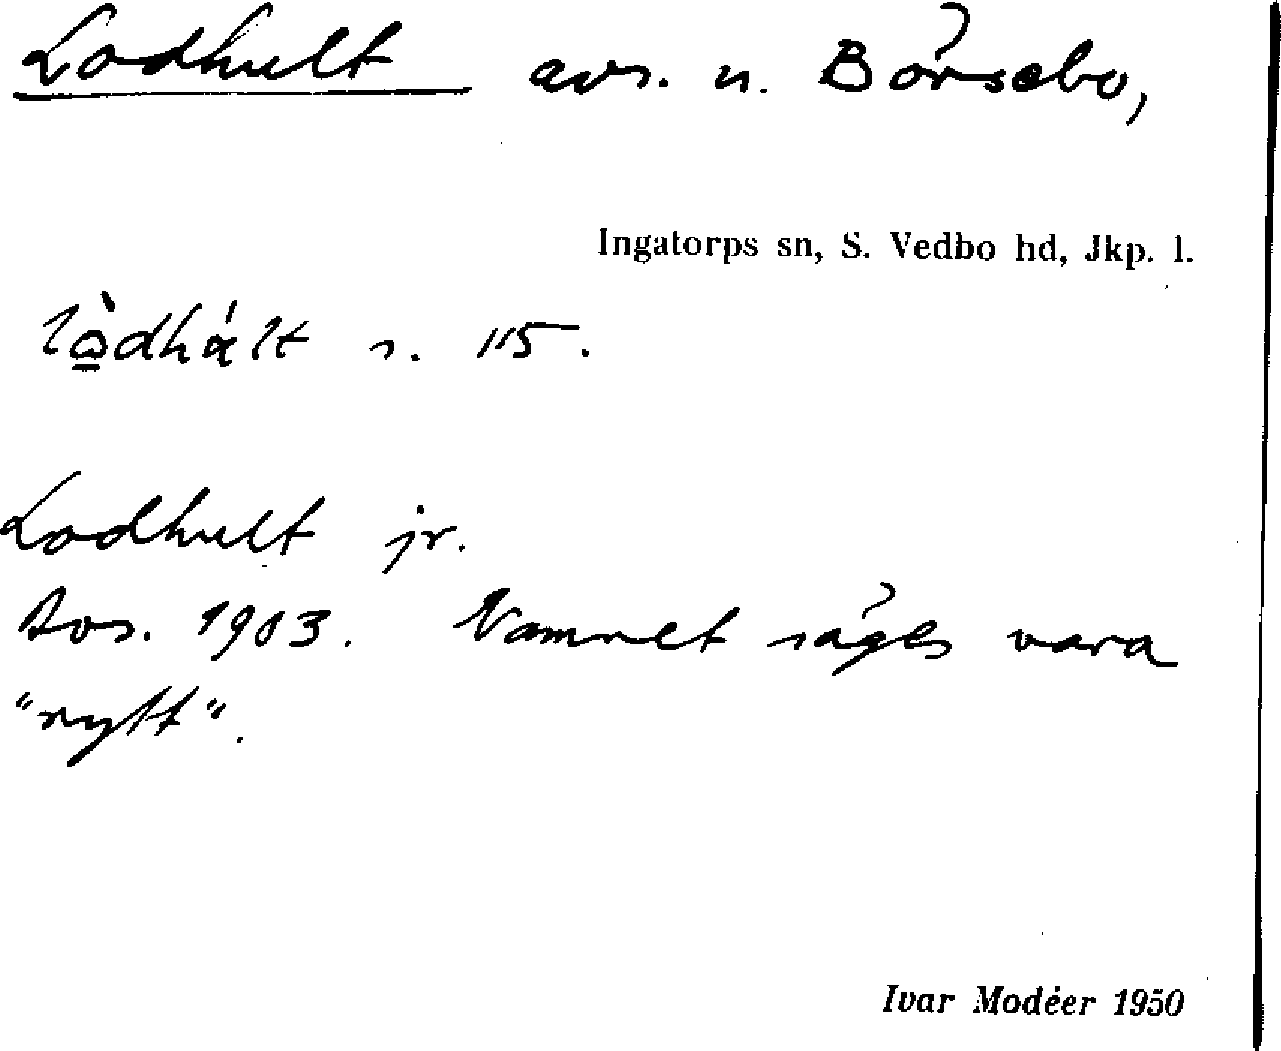 Lodhult avs. u. Börsebo,
Ingatorps sn, S. Vedbo hd, Jkp. l.
s. 115.
Lodhult jr.
Avs. 1903. Namnet säges vara
"nytt".
Ivar Modéer 1950